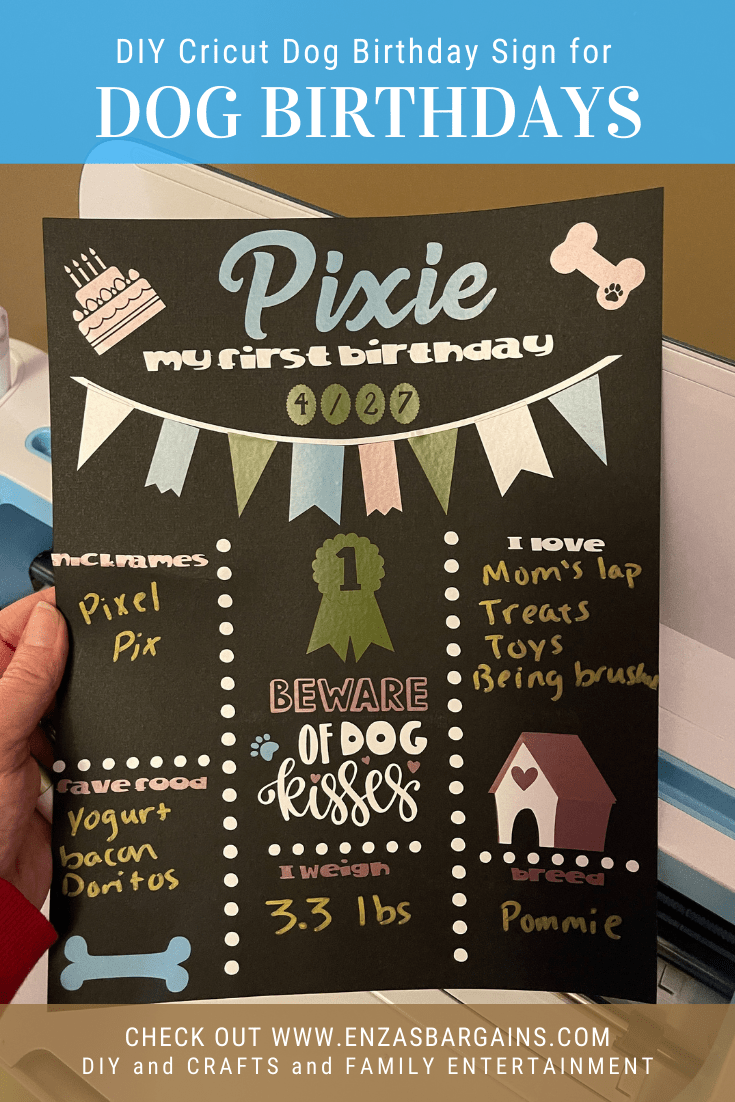 DIY Cricut Dog Birthday Sign for
DOG BIRTHDAYS
Pixie
my first birthday
4/27
nicknames
Pixel
Pix
fave food
Yogurt
bacon
Doritos
1
BEWARE
OF DOG
kisses
I weigh
3.3 lbs
I love
Mom's lap
Treats
Toys
Being brushed
breed
Pommie
CHECK OUT WWW.ENZASBARGAINS.COM
DIY and CRAFTS and FAMILY ENTERTAINMENT